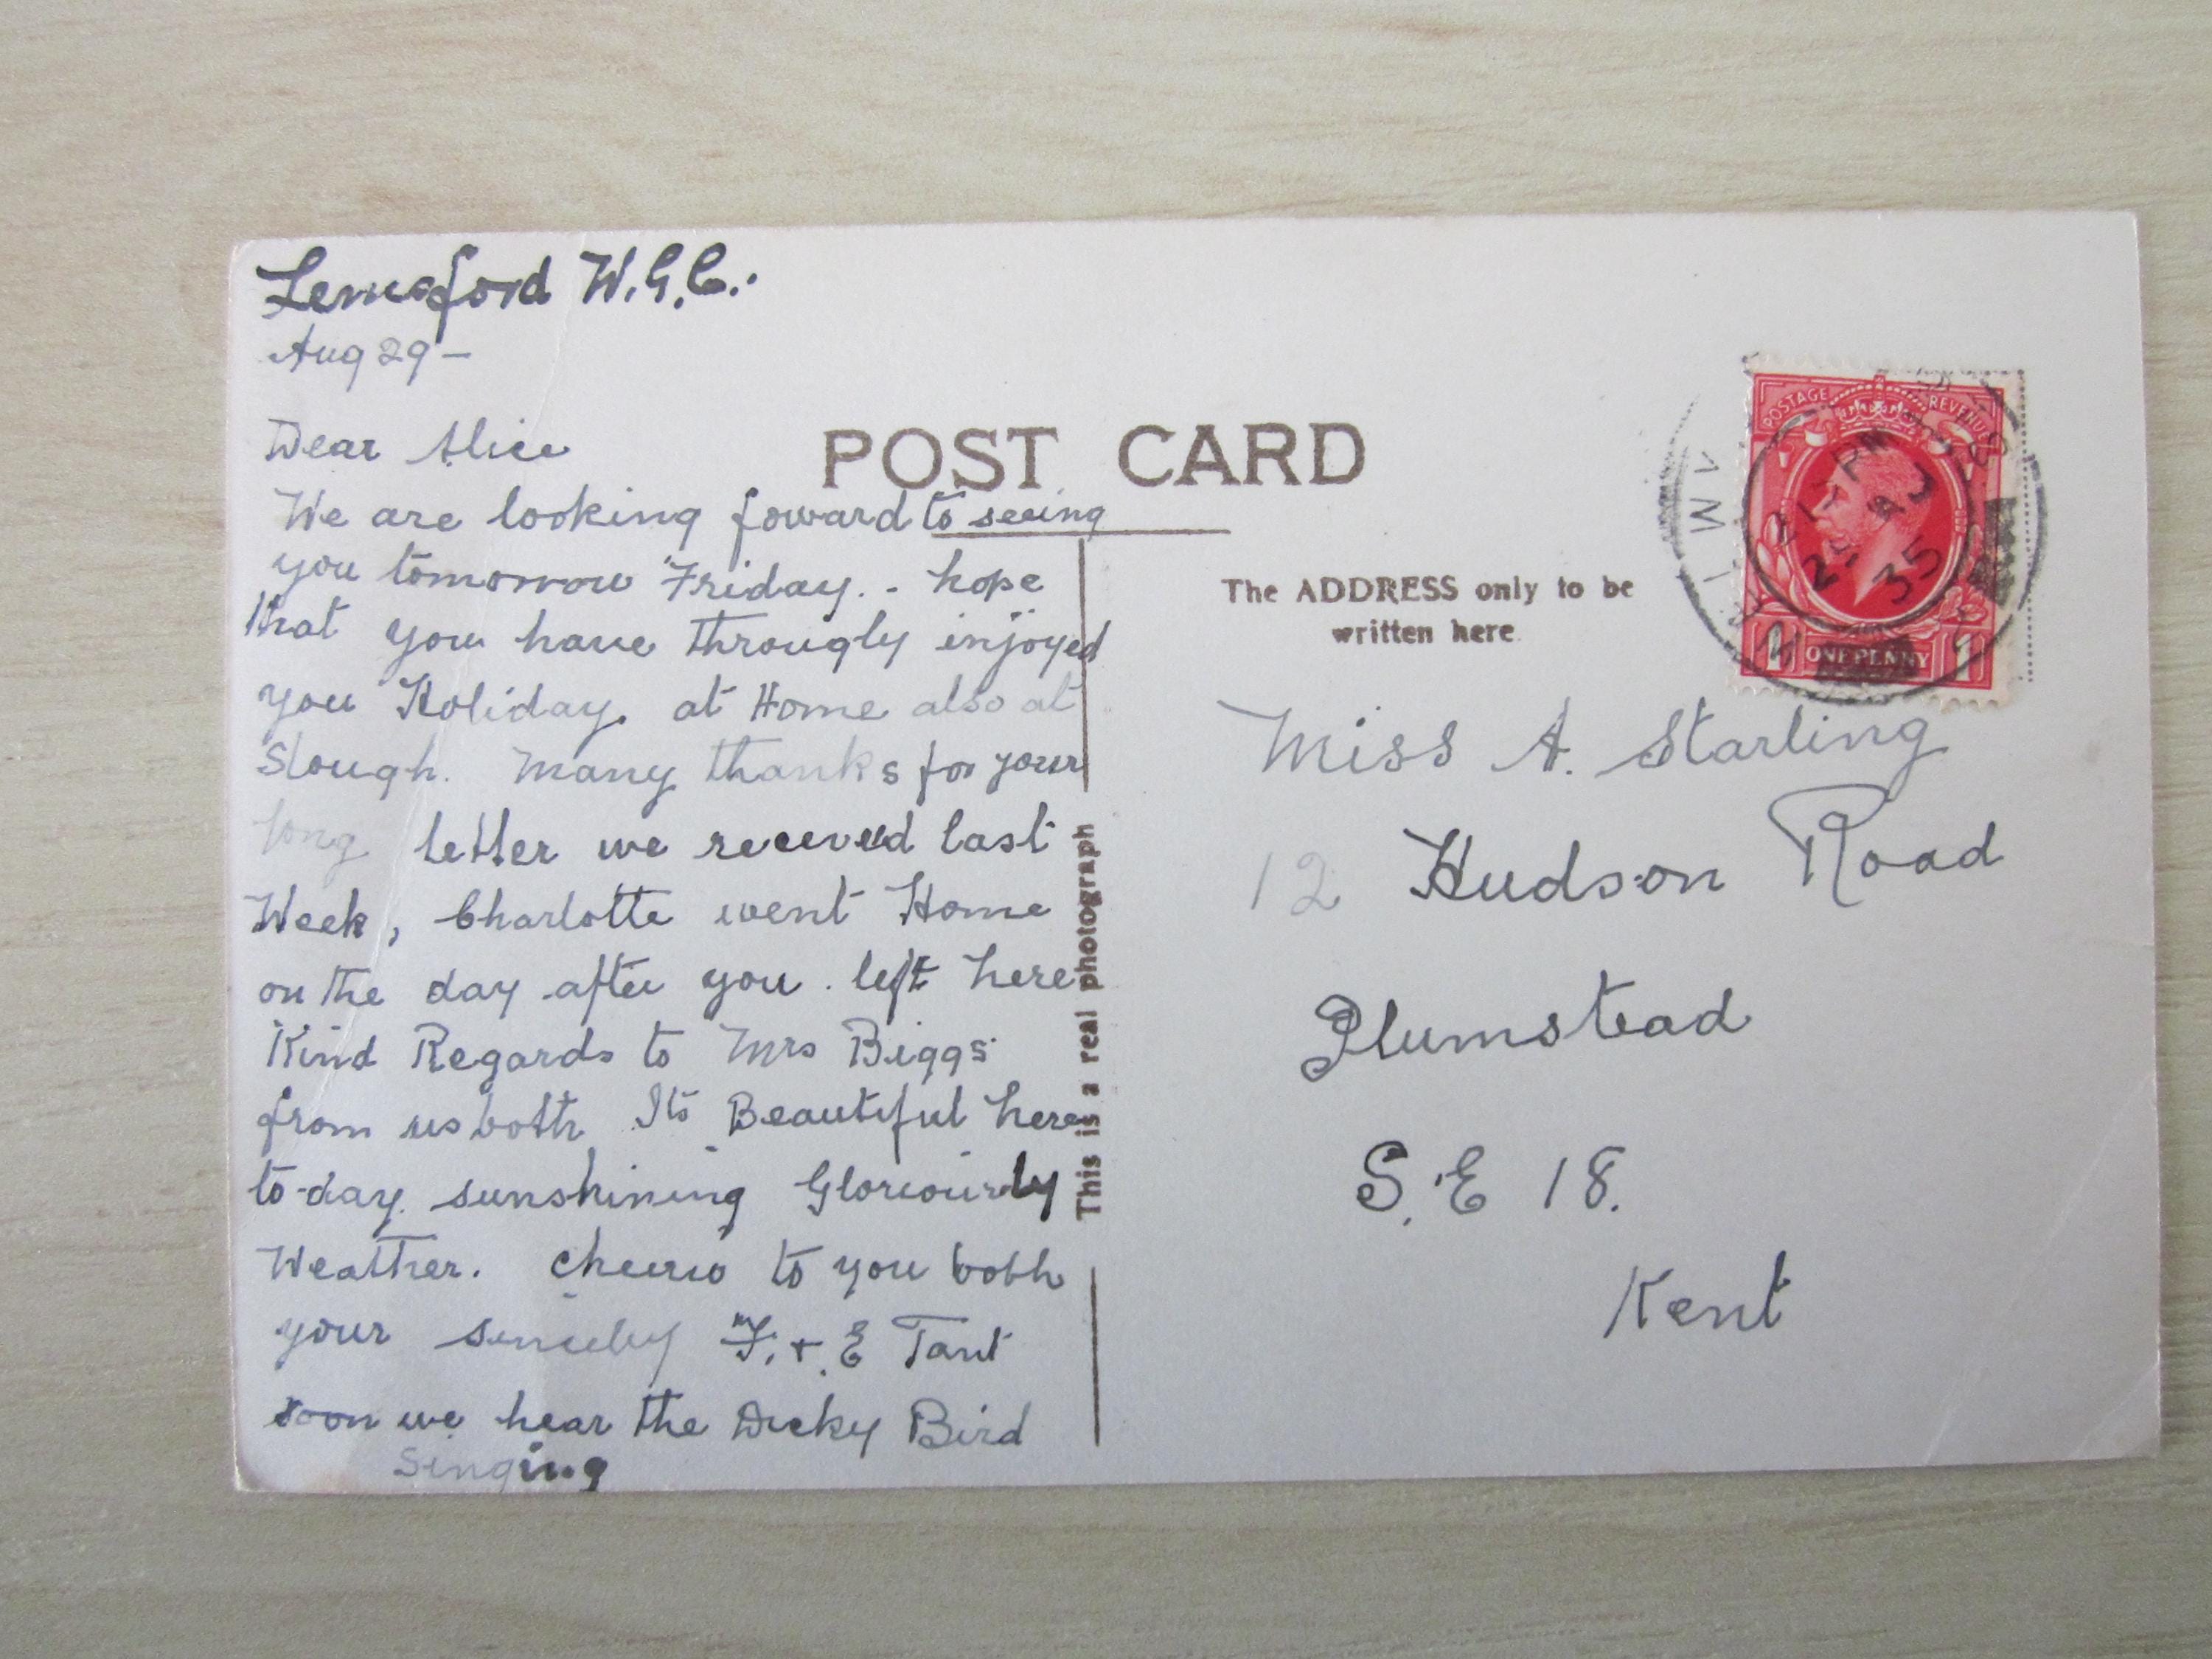 Lemsford W.G.C.
Aug 29 -
Dear Alice
We are looking foward to seeing
you tomorrow Friday. - hope
that you have througly injoyed
you Holiday. at Home also at
Slough. Many thanks for your
long letter we receved last
Week, Charlotte went Home
on the day after you left here
Kind Regards to Mrs Biggs
from us both Its Beautiful here
to-day. sunshining Gloriously
Weather. Cheerio to you both
your F. + E Tant
soon we hear the Dicky Bird
Singing
POST CARD
The ADDRESS only to be
written here
This is a real photograph
Miss A. Starling
12 Hudson Road
Plumstead
S.E 18.
Kent
POSTAGE REVENUE
1 ONE PENNY 1
35